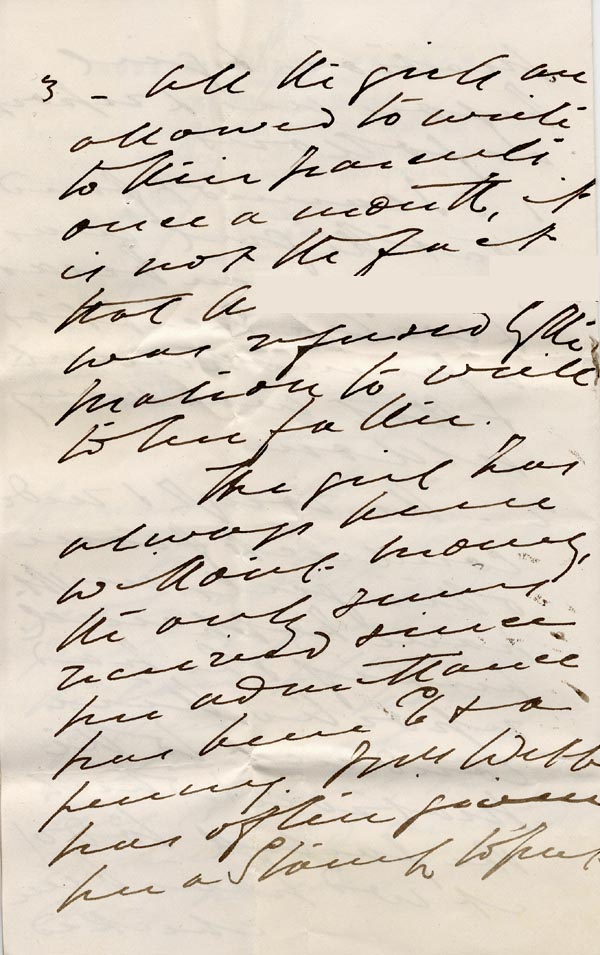 3 - All the girls are
allowed to write
to their parents
once a month, it
is not the fact
that A
was refused by the
matron to write
to her father.
The girl has
always been
without money,
the only sums
received since
her admittance
has been & a
penny. Webb
has often given
her a Stamp to put